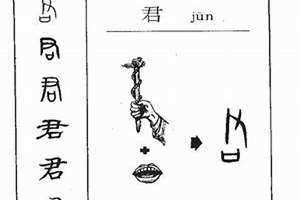 君 jūn
君
君
君
君
君